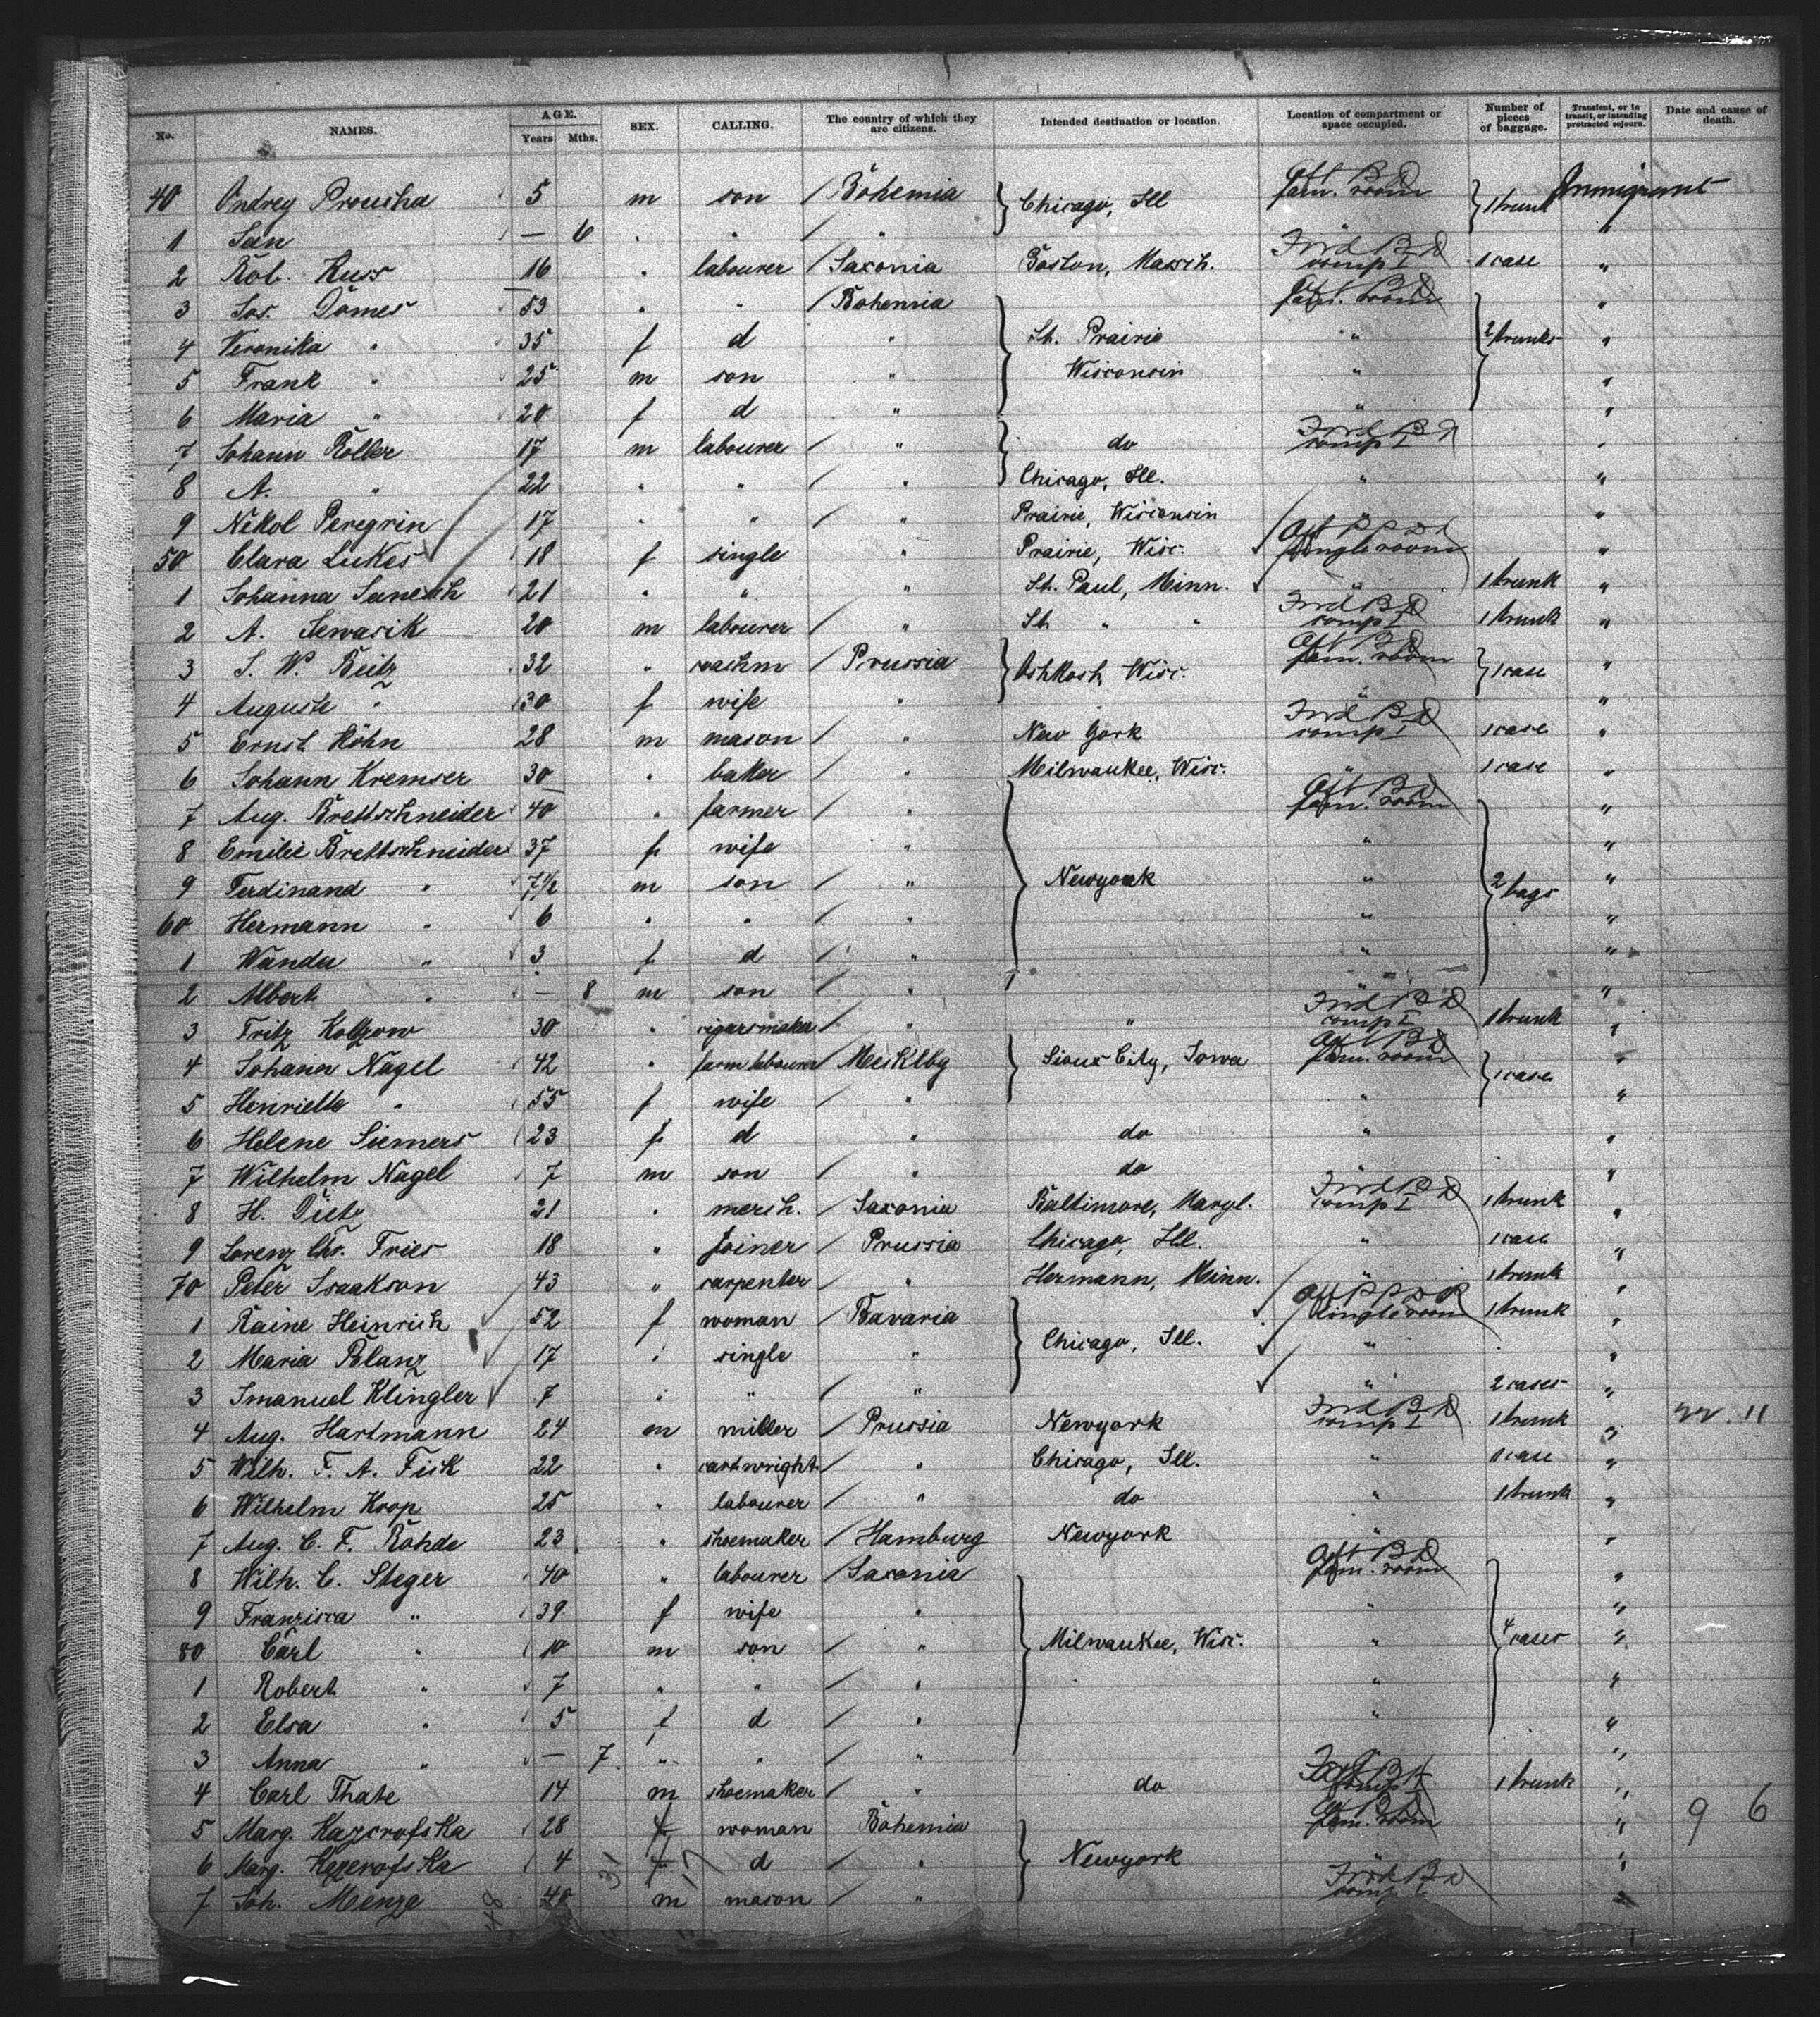 No. NAMES. AGE. Years Mths. SEX. CALLING. The country of which they are citizens. Intended destination or location. Location of compartment or space occupied. Number of pieces of baggage. Transient, or in transit, or intending protracted sojourn. Date and cause of death.
40 Ondrey Prousha 5 m son Bohemia Chicago, Ill Aft B D fam. room 1 trunk Immigrant
1 Jan " — 6 " " " "
2 Rob. Kuss 16 " labourer Saxonia Boston, Massch. Frd B D comp I 1 case "
3 Jos. Domes 53 " " Bohemia Aft B D fam. room "
4 Veronika " 35 f d " St. Prairie " 2 trunks "
5 Frank " 25 m son " Wisconsin " "
6 Maria " 20 f d " " "
7 Johann Roller 17 m labourer " do Frd B D comp I "
8 A. " 22 " " " Chicago, Ill. " "
9 Nikol Peregrin 17 " " " Prairie, Wisconsin " "
50 Clara Lukes 18 f single " Prairie, Wisc. Aft single room "
1 Johanna Janesch 21 " " " St. Paul, Minn. " 1 trunk "
2 A. Jewasik 20 m labourer " St. " " Frd B D comp I 1 trunk "
3 J. W. Beitz 32 " coachm Prussia Oshkosh, Wisc. Aft B D fam. room 1 case "
4 Auguste " 30 f wife " " "
5 Ernst Höhn 28 m mason " New York Frd B D comp I 1 case "
6 Johann Kremser 30 " baker " Milwaukee, Wisc. " 1 case "
7 Aug. Brettschneider 40 " farmer " Aft B D fam. room "
8 Emilie Brettschneider 37 f wife " " "
9 Ferdinand " 7 1/2 m son " Newyork " 2 bags "
60 Hermann " 6 " " " " "
1 Wanda " 3 f d " " "
2 Albert " — 8 m son " " "
3 Fritz Koltzow 30 " cigarsmaker " " Frd B D comp I 1 trunk "
4 Johann Nagel 42 " farm labourer Mecklbg Sioux City, Iowa Aft B D fam. room 1 case "
5 Henriette " 55 f wife " " "
6 Helene Siemers 23 f d " do " "
7 Wilhelm Nagel 7 m son " do " "
8 H. Dietz 21 " merch. Saxonia Baltimore, Maryl. Frd B D comp I 1 trunk "
9 Lorenz Chr. Fries 18 " joiner Prussia Chicago, Ill. " 1 case "
70 Peter Isaakson 43 " carpenter " Hermann, Minn. " 1 trunk "
1 Raine Heinrich 52 f woman Bavaria Aft single room 1 trunk "
2 Maria Polanz 17 " single " Chicago, Ill. " "
3 Imanuel Klingler 7 " " " " 2 cases "
4 Aug. Hartmann 24 m miller Prussia Newyork Frd B D comp I 1 trunk " 22. 11
5 Wilh. F. A. Fick 22 " cartwright " Chicago, Ill. " 1 case "
6 Wilhelm Koop 25 " labourer " do " 1 trunk "
7 Aug. C. F. Rohde 23 " shoemaker Hamburg Newyork " "
8 Wilh. C. Steger 40 " labourer Saxonia Aft B D fam. room "
9 Franzisca " 39 f wife " " "
80 Carl " 10 m son " Milwaukee, Wisc. " 4 cases "
1 Robert " 7 " " " " "
2 Elsa " 5 f d " " "
3 Anna " — 7 " " " "
4 Carl Thate 14 m shoemaker " do Frd B D comp I 1 trunk "
5 Marg. Kazcrofska 28 f woman Bohemia Aft B D fam. room " 9 6
6 Marg. Kazerofska 4 f d " Newyork "
7 Joh. Menze 40 m mason " Frd B D comp I "
48 31 17